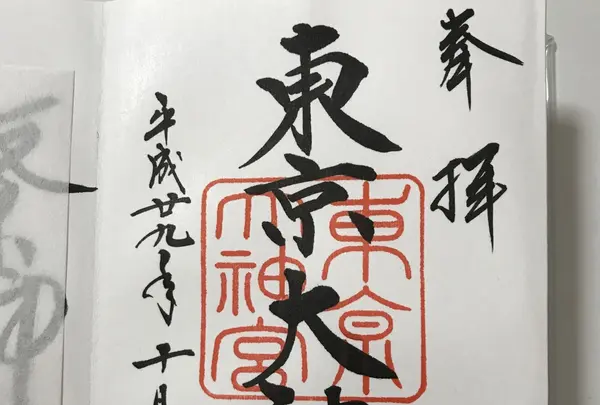 奉拝
東京大
東京
大神宮
平成廿九年十月